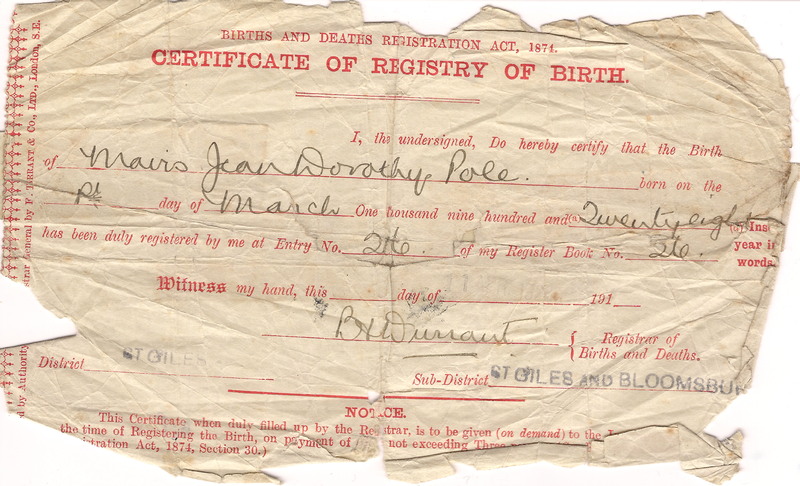 BIRTHS AND DEATHS REGISTRATION ACT, 1874.
CERTIFICATE OF REGISTRY OF BIRTH.
I, the undersigned, Do hereby certify that the Birth
of Mavis Jean Dorothy Pole. born on the
day of March One thousand nine hundred and (a) Twenty eight (a) Ins
year i
words
has been duly registered by me at Entry No. 246. of my Register Book No. 26.
Witness my hand, this day of 191
B H Durrant Registrar of
Births and Deaths.
District ST GILES
Sub-District ST GILES AND BLOOMSBU
NOTICE.
This Certificate when duly filled up by the Re trar, is to be given (on demand) to the
the time of Registering the Birth, on payment of not exceeding Three
istration Act, 1874, Section 30.)
d by Authority
strar General by F. TARRANT & CO., LTD., London, S.E.